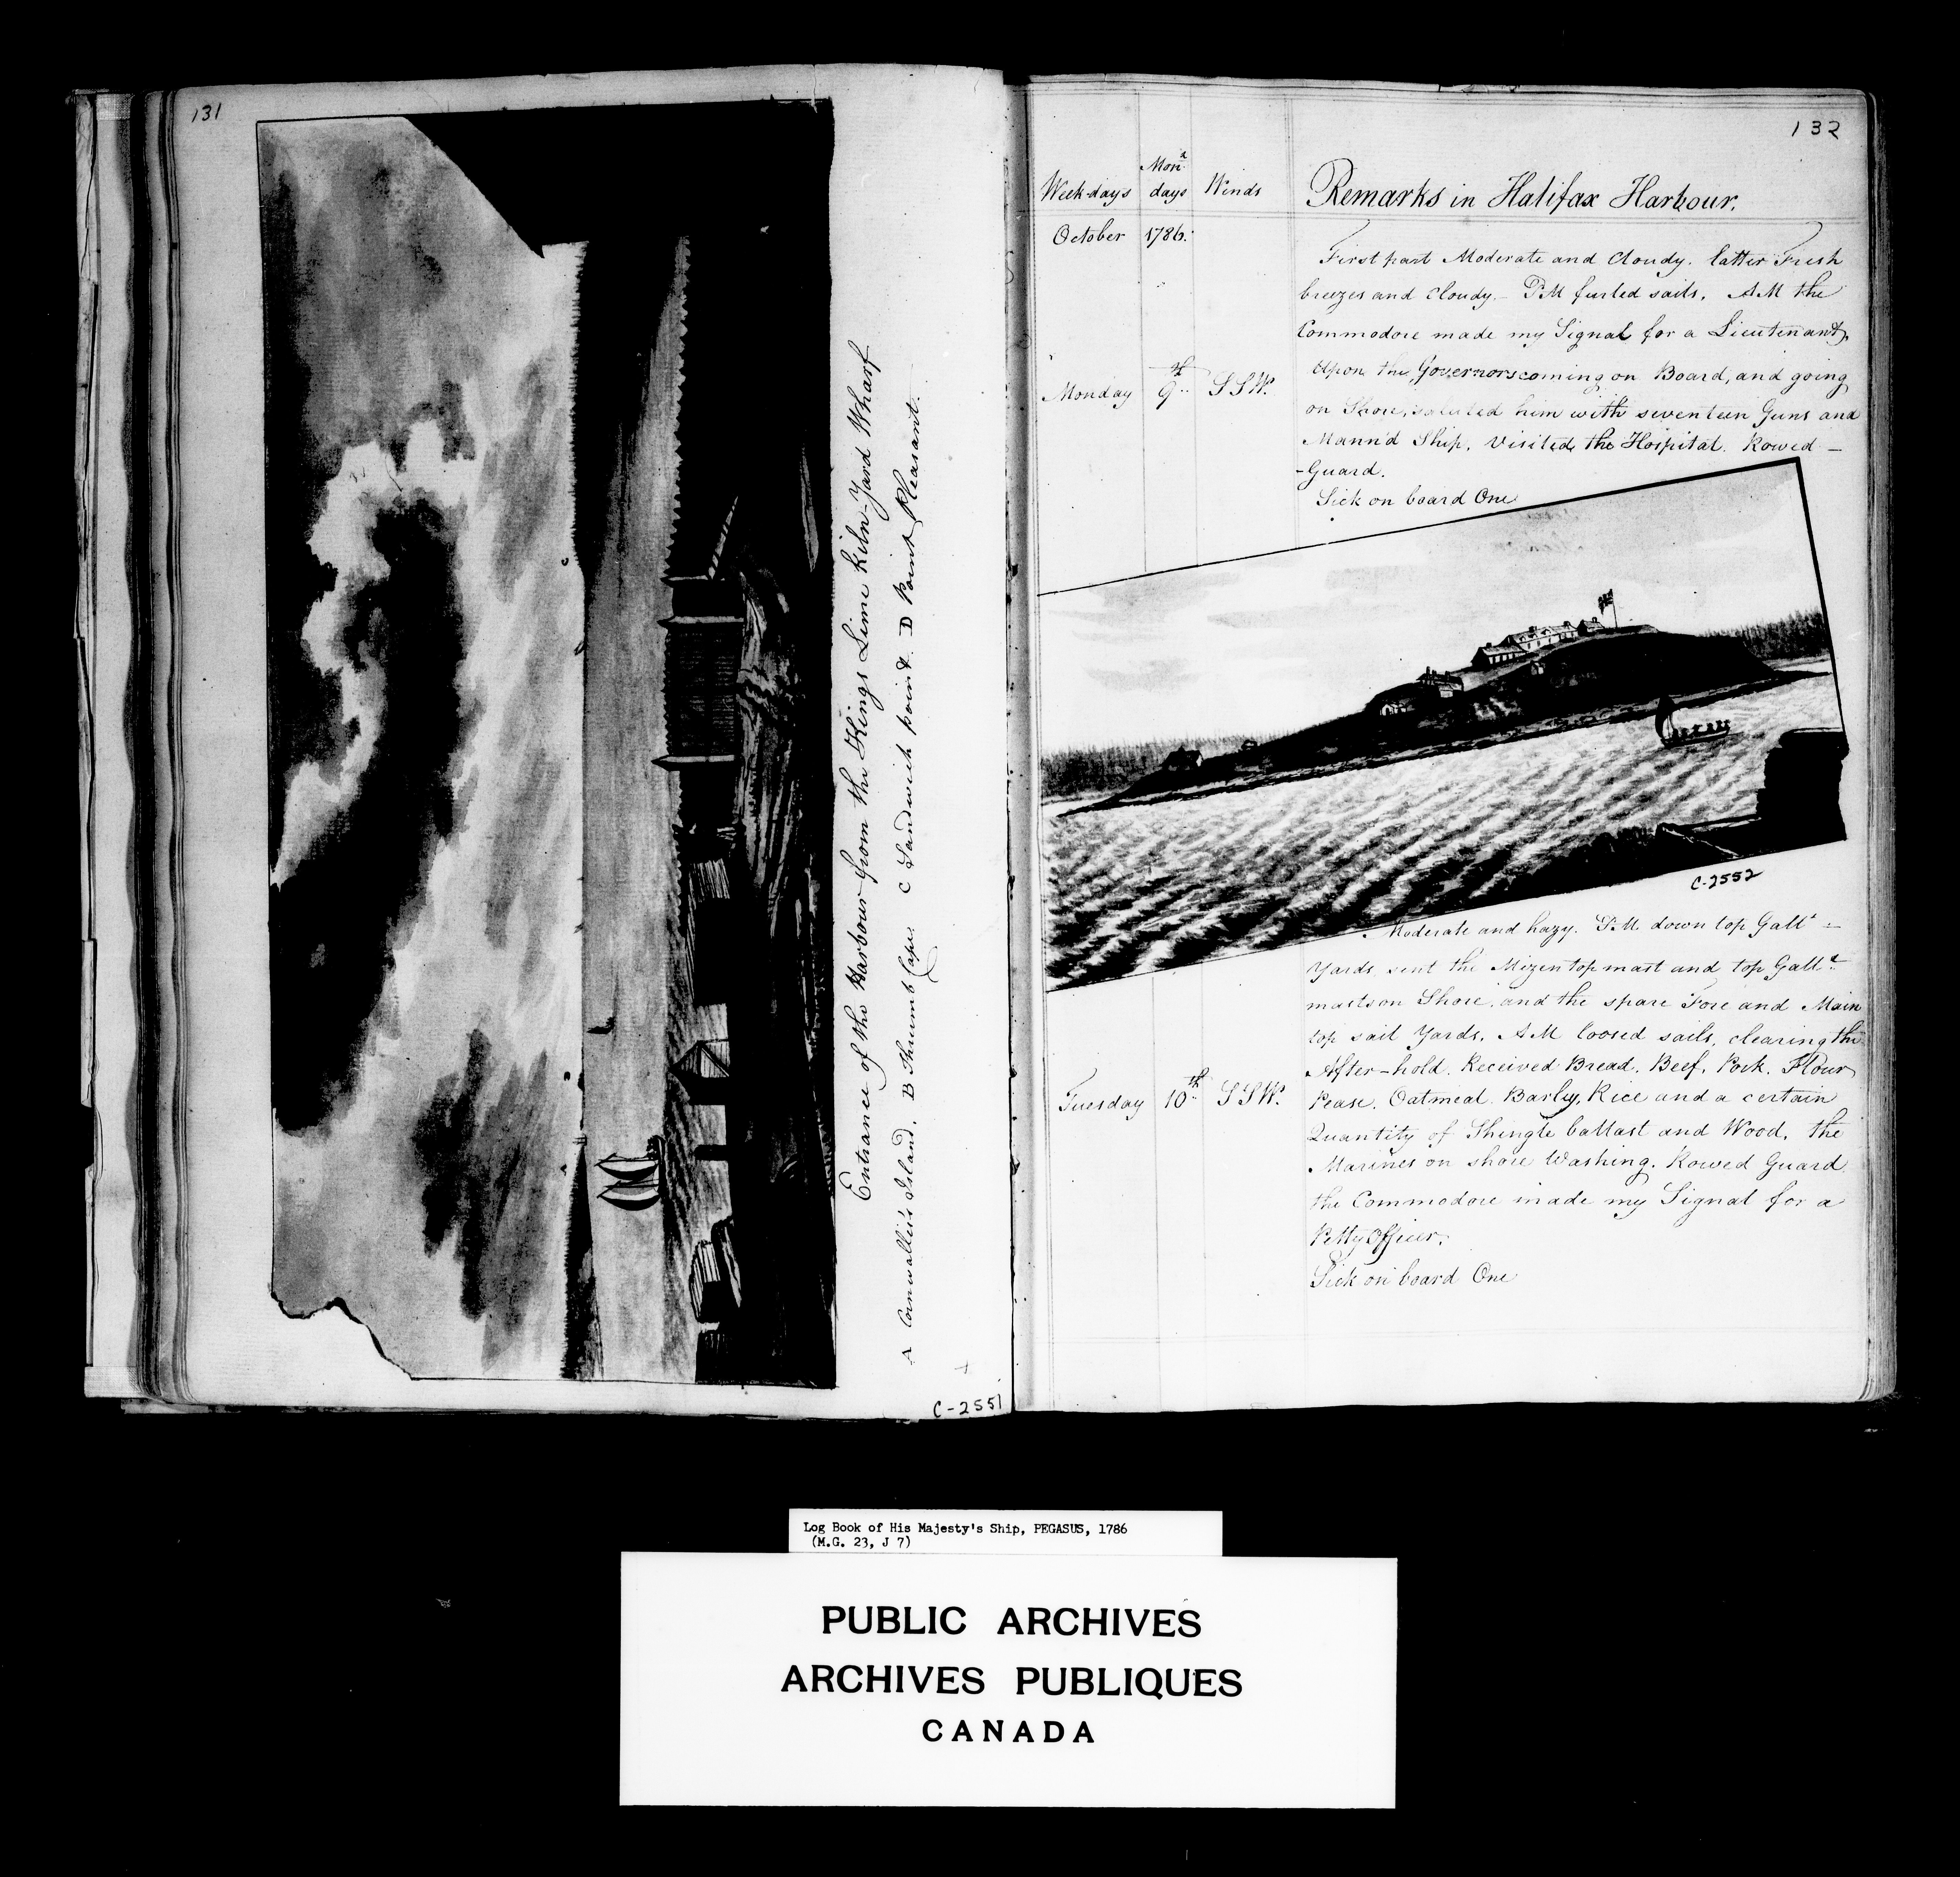 131
Entrance of the Harbour from the Kings Lime Kiln-Yard Wharf
A Cornwallis's Island. B Thrumb Cape. C Sandwich point. D Point Pleasant.
C-2551
132
Week-days Mon.ⁿ days Winds Remarks in Halifax Harbour.
October 1786.
First part Moderate and Cloudy. latter Fresh
breezes and Cloudy. PM furled sails. AM the
Commodore made my Signal for a Lieutenant,
Upon the Governors coming on Board, and going
Monday 9th SSW.
on Shore, saluted him with seventeen Guns and
Mann'd Ship. Visited the Hospital. Rowed -
-Guard.
Sick on board One
C-2552
Moderate and hazy. PM down top Gallt =
Yards, sent the Mizen top mast and top Gallt
masts on Shore, and the spare Fore and Main
top sail Yards. AM loosed sails, clearing the
After-hold. Received Bread, Beef, Pork. Flour
Tuesday 10th SSW.
Pease. Oatmeal. Barly, Rice and a certain
Quantity of Shingle ballast and Wood. the
Marines on shore Washing. Rowed Guard.
the Commodore made my Signal for a
Petty Officer.
Sick on board One
Log Book of His Majesty's Ship, PEGASUS, 1786
(M.G. 23, J 7)
PUBLIC ARCHIVES
ARCHIVES PUBLIQUES
CANADA